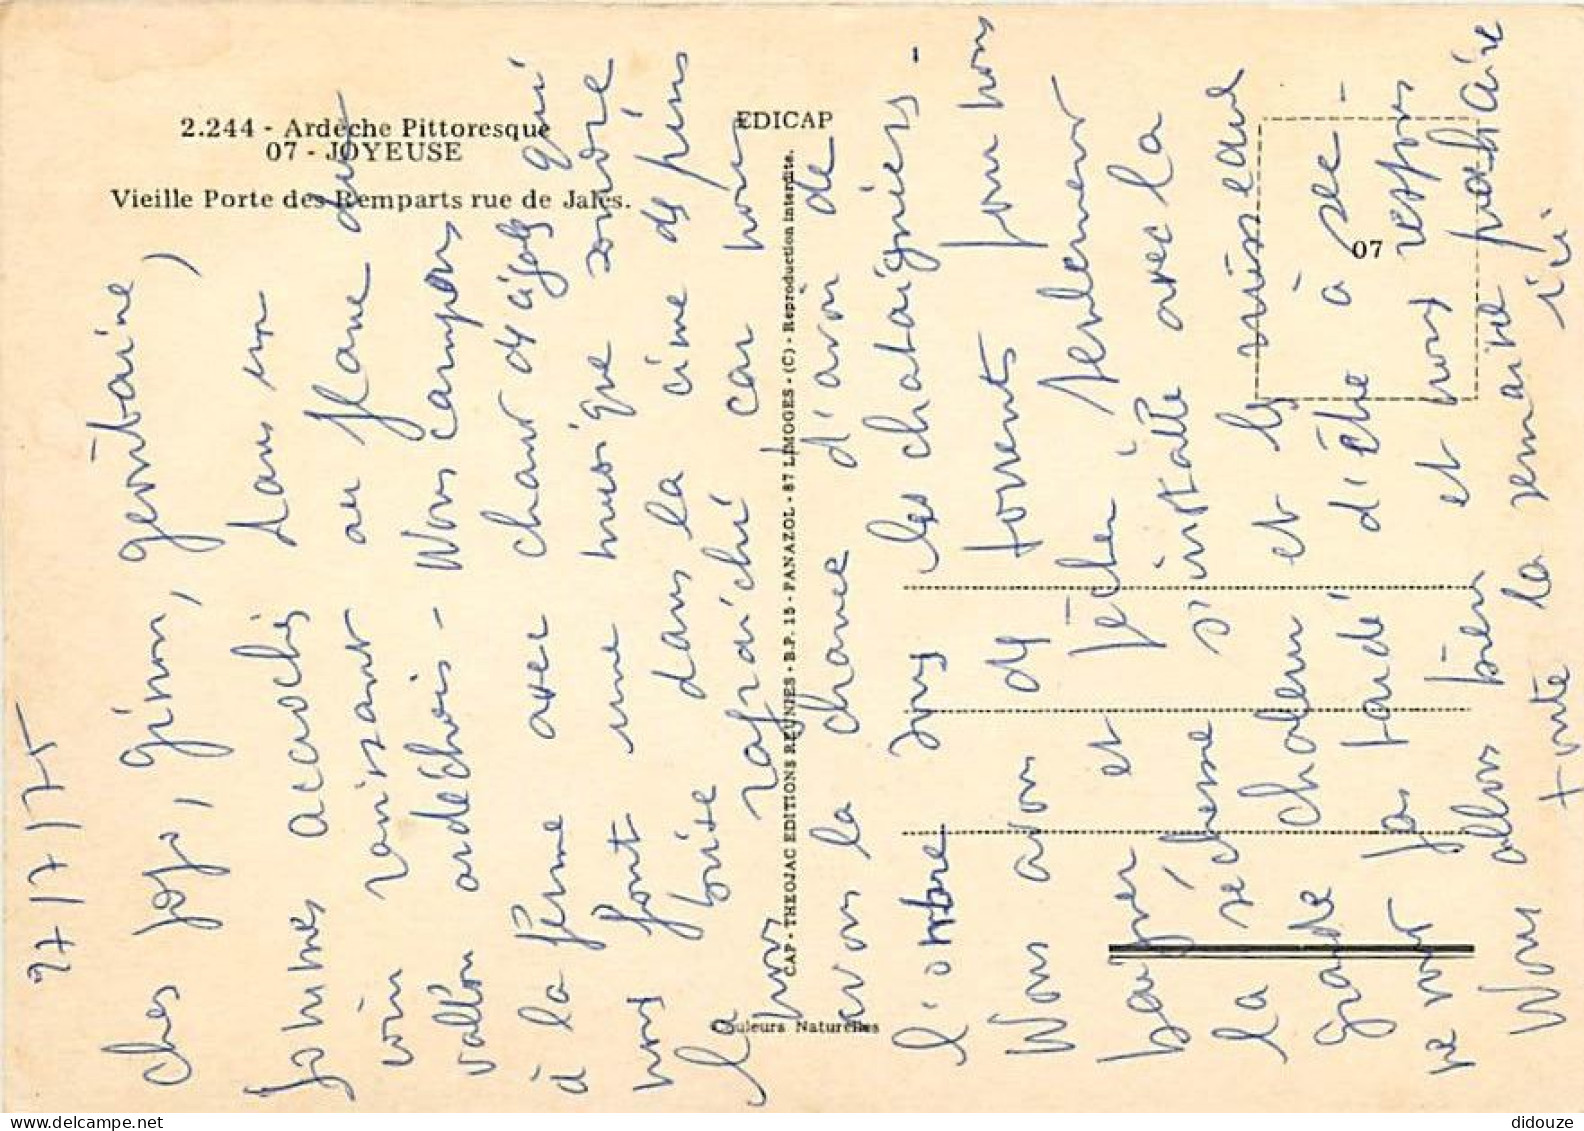 2.244 - Ardèche Pittoresque
07 - JOYEUSE
Vieille Porte des Remparts rue de Jalès.
EDICAP
07
CAP - THEOJAC EDITIONS REUNIES - B.P. 15 - PANAZOL - 87 LIMOGES - (C) - Reproduction interdite.
Couleurs Naturelles
27/7/75
chers Jojo, Ginou,
sommes accrochés dans un
coin ravissant au flanc d'un
vallon ardéchois - Nous campons
à la ferme avec chant de cigales qui
nous font une musique sonore
la brise dans la cime des pins
nous rafraîchi car nous
avons la chance d'avoir de
l'ombre sous les chataigniers -
Nous avons des torrents pour nous
baigner et pêcher seulement
la sécheresse s'installe avec la
grande chaleur et les ruisseaux
ne vont pas tardé d'être à sec -
Nous allons bien et nous restons
toute la semaine prochaine
ici
didouze